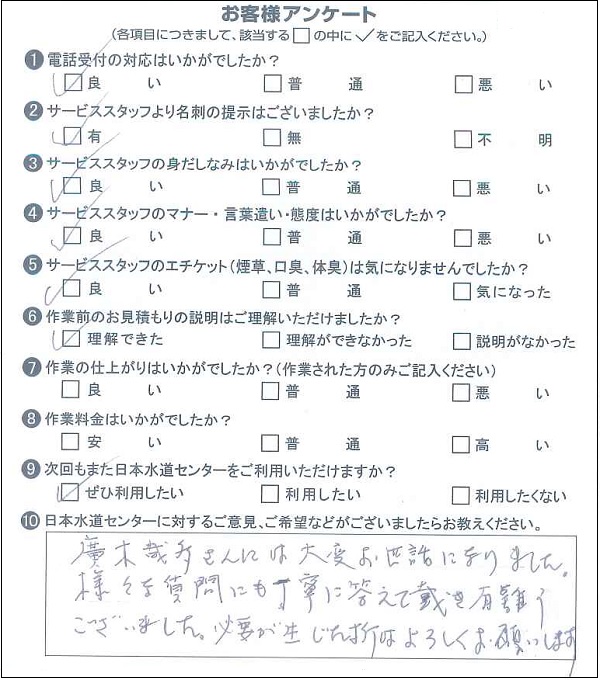 お客様アンケート
(各項目につきまして、該当する□の中に✓をご記入ください。)
❶電話受付の対応はいかがでしたか?
□良 い □普 通 □悪 い
❷サービススタッフより名刺の提示はございましたか?
□有 □無 □不 明
❸サービススタッフの身だしなみはいかがでしたか?
□良 い □普 通 □悪 い
❹サービススタッフのマナー・言葉遣い・態度はいかがでしたか?
□良 い □普 通 □悪 い
❺サービススタッフのエチケット(煙草、口臭、体臭)は気になりませんでしたか?
□良 い □普 通 □気になった
❻作業前のお見積もりの説明はご理解いただけましたか?
□理解できた □理解ができなかった □説明がなかった
❼作業の仕上がりはいかがでしたか?(作業された方のみご記入ください)
□良 い □普 通 □悪 い
❽作業料金はいかがでしたか?
□安 い □普 通 □高 い
❾次回もまた日本水道センターをご利用いただけますか?
□ぜひ利用したい □利用したい □利用したくない
❿日本水道センターに対するご意見、ご希望などがございましたらお教えください。
さんには大変お世話になりました。
様々な質問にも丁寧に答えて戴き有難う
ございました。必要が生じた折はよろしくお願いします